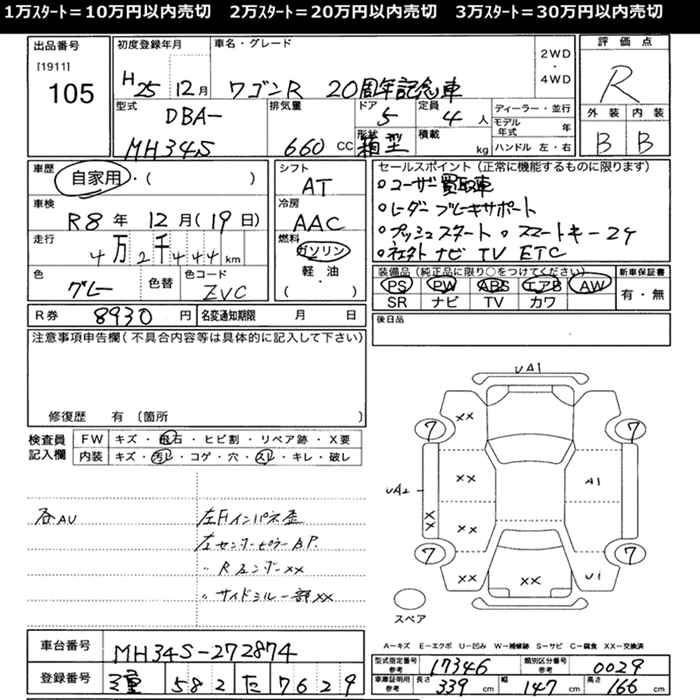 1万ｽﾀｰﾄ＝10万円以内売切　2万ｽﾀｰﾄ＝20万円以内売切　3万ｽﾀｰﾄ＝30万円以内売切
出品番号
[1911]
105
初度登録年月
H25 12月
車名・グレード
ワゴンR 20周年記念車
2WD
・
4WD
評価点
R
外装 内装
B B
型式
DBA-
MH34S
排気量
660 CC
ドア
5
形状
箱型
定員
4 人
積載
kg
ディーラー・並行
モデル年式 年
ハンドル 左・右
車歴
自家用・( )
車検
R8年 12月(19日)
走行
4万2千444km
色
グレー
色替
色コード
ZVC
シフト
AT
冷房
AAC
燃料
ガソリン
軽・油
( )
セールスポイント（正常に機能するものに限ります）
○ユーザー買取車
○レーダーブレーキサポート
○プッシュスタート ○スマートキー2ケ
○社外ナビ TV ETC
装備品（純正品に限り○をつけてください）
PS PW ABS エアB AW
SR ナビ TV カワ
新車保証書
有・無
R券 8930円
名変通知期限 月 日
後日品
注意事項申告欄(不具合内容等は具体的に記入して下さい)
修復歴 有 (箇所 )
検査員記入欄
FW キズ・飛石・ヒビ割・リペア跡・X要
内装 キズ・汚レ・コゲ・穴・スレ・キレ・破レ
各AU
左Fインパネ歪
左センターピラーBP.
〃Rフェンダーxx
〃サイドシル一部xx
UA1
xx
7
7
xx
A1
UA2
xx
xx
7
7
xx
xx
U1
スペア
A－キズ E－エクボ U－凹み W－補修跡 S－サビ C－腐食 XX－交換済
車台番号 MH34S-272874
登録番号 三重 582 た 7629
型式指定番号 参考 17346
類別区分番号 参考 0029
車庫証明用 参考 長さ 339 cm 幅 147 cm 高さ 166 cm